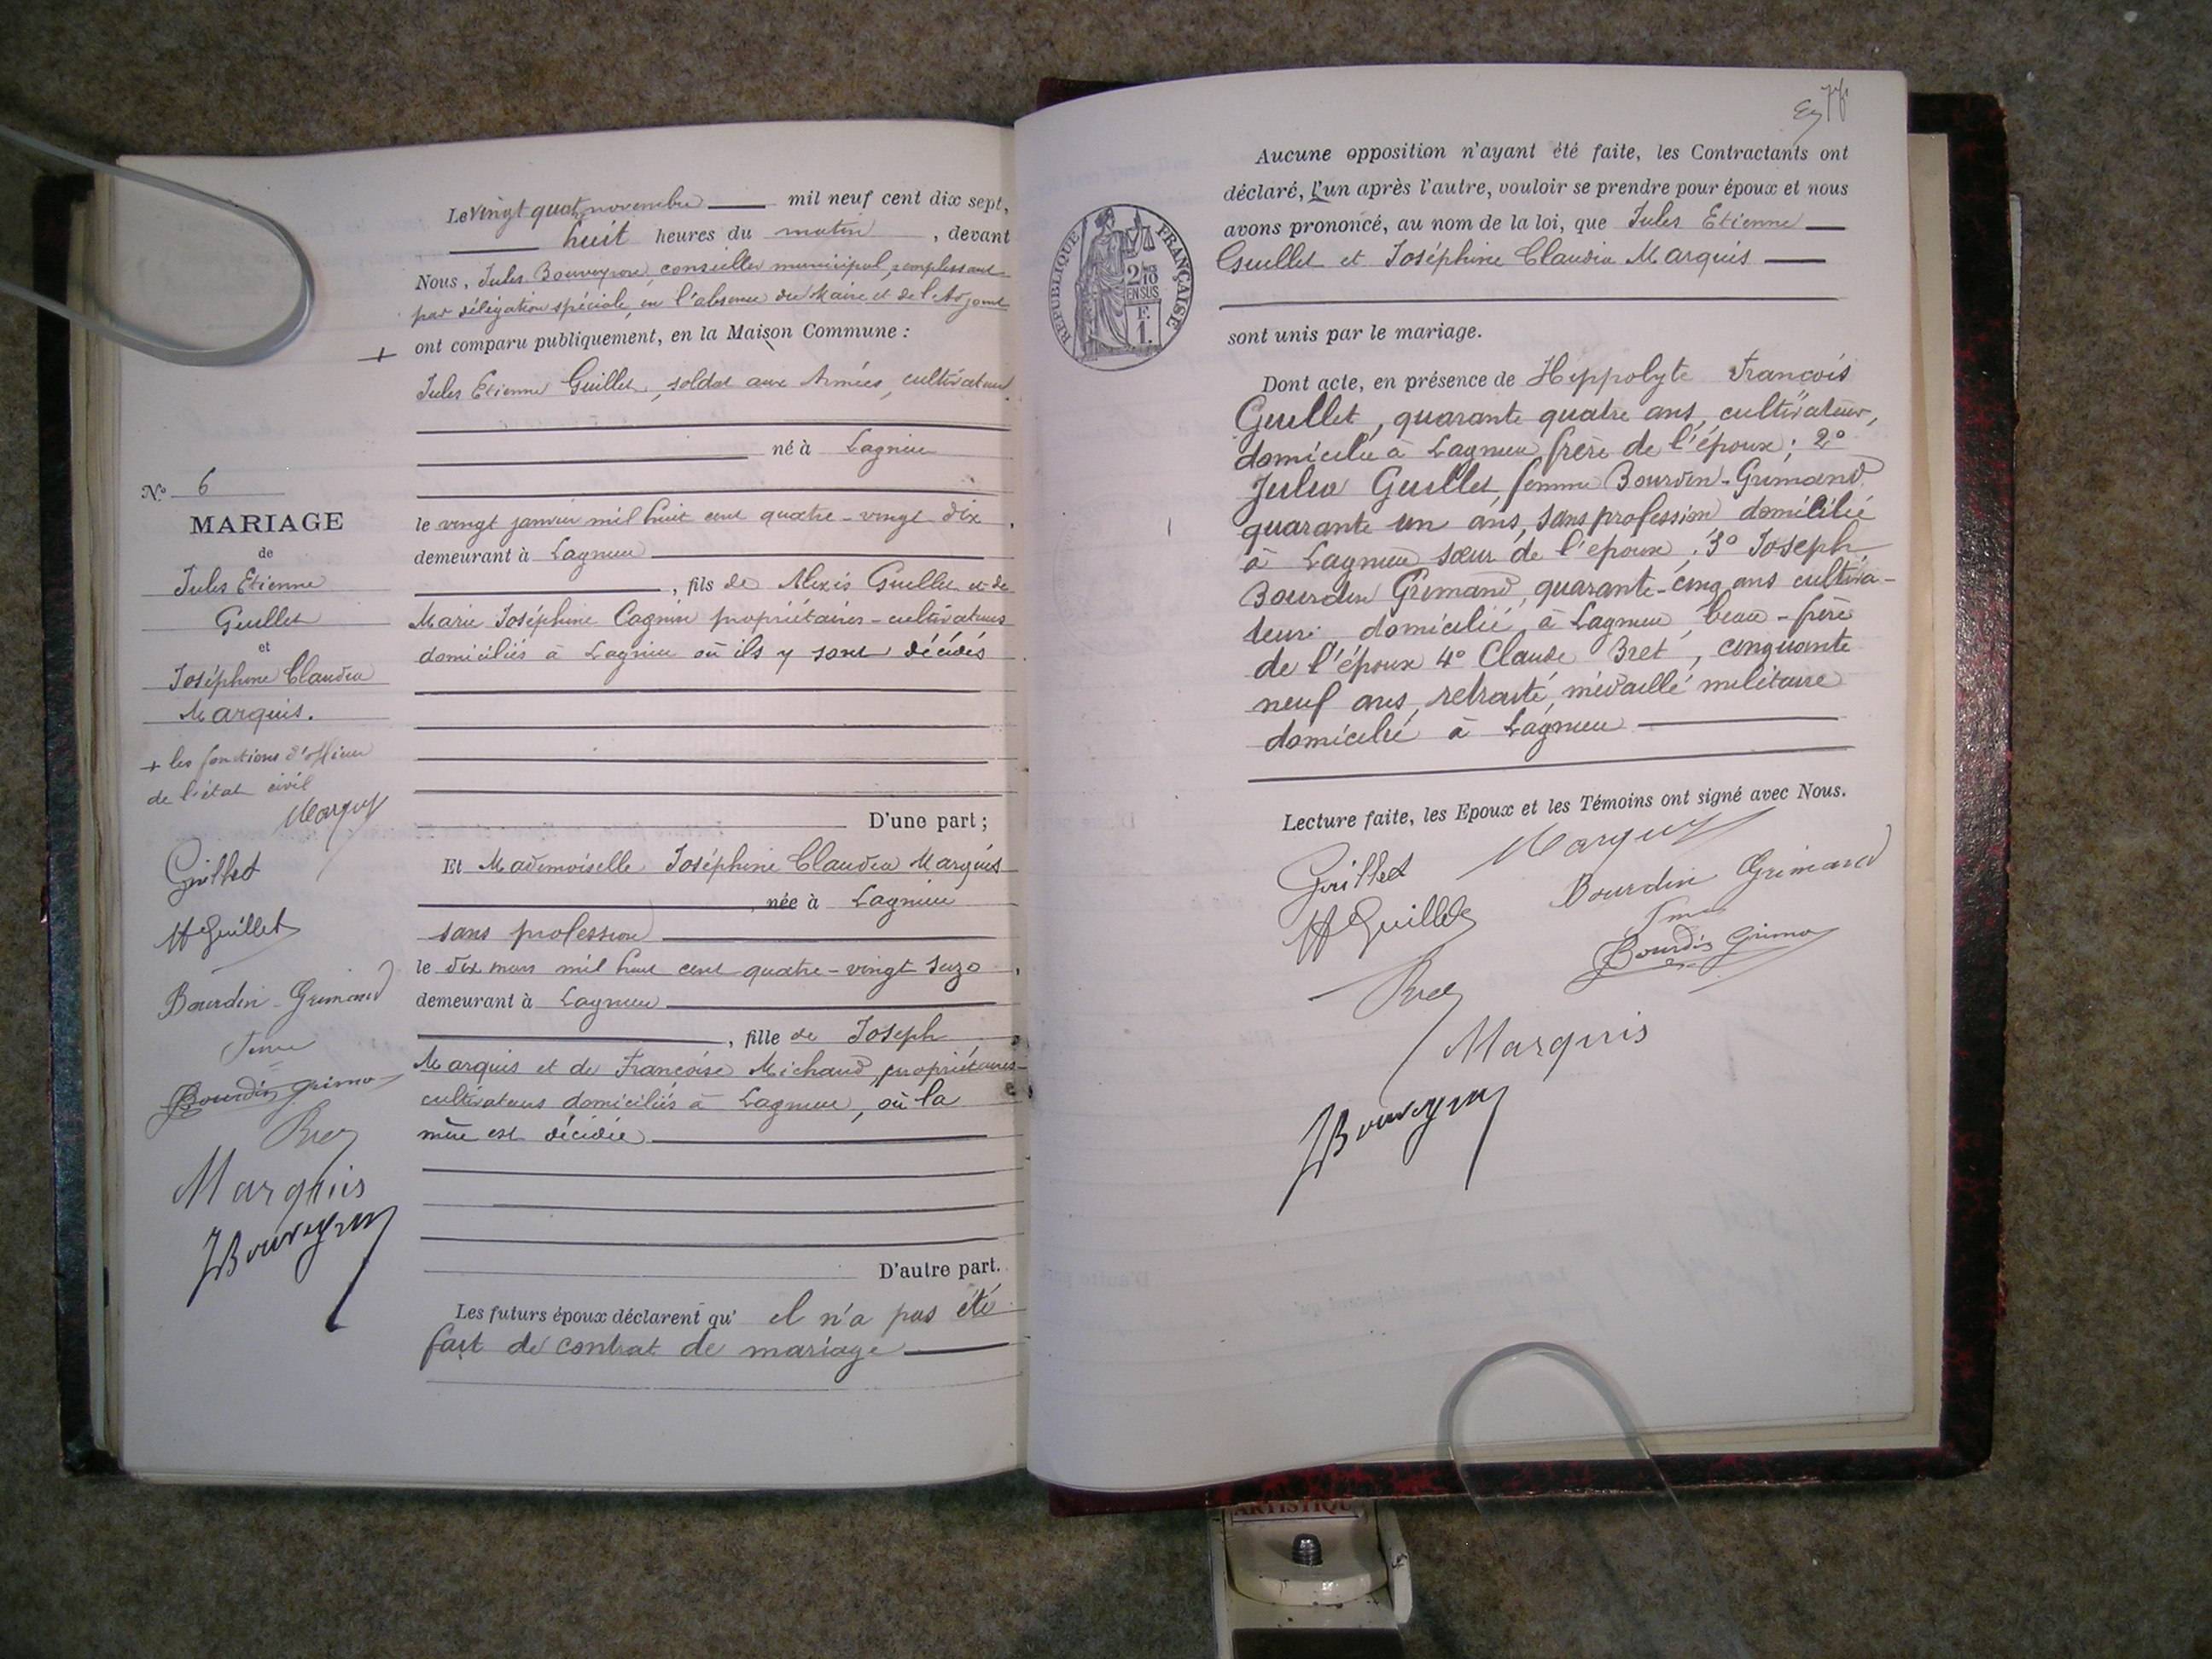 N° 6
MARIAGE
de
Jules Etienne
Guillet
et
Joséphine Claudia
Marquis.
+ les fonctions d'officier
de l'état civil
Marquis
Guillet
H Guillet
Bourdin-Grimand
Bourdin Grima
Bret
Marquis
JBouveyron
Le vingt quatre novembre mil neuf cent dix sept,
huit heures du matin, devant
Nous, Jules Bouveyron conseiller municipal, remplissant
par délégation spéciale, en l'absence du Maire et de l'Adjoint
+ ont comparu publiquement, en la Maison Commune :
Jules Etienne Guillet, soldat aux Armées, cultivateur
né à Lagnieu
le vingt janvier mil huit cent quatre-vingt dix,
demeurant à Lagnieu
, fils de Alexis Guillet et de
Marie Joséphine Cagnin propriétaires-cultivateurs
domiciliés à Lagnieu où ils y sont décédés
D'une part ;
Et Mademoiselle Joséphine Claudia Marquis
, née à Lagnieu
sans profession
le dix mars mil huit cent quatre-vingt seize,
demeurant à Lagnieu
, fille de Joseph
Marquis et de Françoise Michaud, propriétaires-
cultivateurs domiciliés à Lagnieu, où la
mère est décédée
D'autre part.
Les futurs époux déclarent qu' il n'a pas été
fait de contrat de mariage
Aucune opposition n'ayant été faite, les Contractants ont
déclaré, l'un après l'autre, vouloir se prendre pour époux et nous
avons prononcé, au nom de la loi, que Jules Etienne
Guillet et Joséphine Claudia Marquis
sont unis par le mariage.
RÉPUBLIQUE FRANÇAISE
2/10
EN SUS
F.
1.
Dont acte, en présence de Hippolyte François
Guillet, quarante quatre ans, cultivateur,
domicilié à Lagnieu frère de l'époux; 2°
Julia Guillet, femme Bourdin-Grimand
quarante un ans, sans profession domicilié
à Lagnieu sœur de l'epoux; 3° Joseph
Bourdin Grimand, quarante-cinq ans cultiva-
teur domicilié, à Lagnieu, beau-frère
de l'époux 4° Claude Bret, cinquante
neuf ans, retraité, médaillé militaire
domicilié à Lagnieu
Lecture faite, les Epoux et les Témoins ont signé avec Nous.
Guillet Marquis
H Guillet Bourdin Grimand
Bourdin Grima
Bret
Marquis
JBouveyron
ARTISTIQU